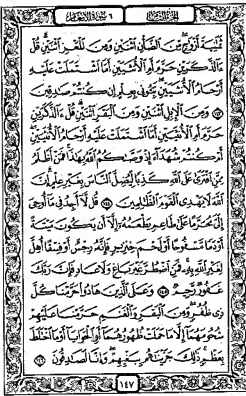 الجزء الثامن ٦ سورة الأنعام
ثَمَٰنِيَةَ أَزْوَٰجٍ مِّنَ الضَّأْنِ اثْنَيْنِ وَمِنَ الْمَعْزِ اثْنَيْنِ قُلْ
ءَآلذَّكَرَيْنِ حَرَّمَ أَمِ الْأُنثَيَيْنِ أَمَّا اشْتَمَلَتْ عَلَيْهِ
أَرْحَامُ الْأُنثَيَيْنِ نَبِّـُٔونِي بِعِلْمٍ إِن كُنتُمْ صَٰدِقِينَ
١٤٣ وَمِنَ الْإِبِلِ اثْنَيْنِ وَمِنَ الْبَقَرِ اثْنَيْنِ قُلْ ءَآلذَّكَرَيْنِ
حَرَّمَ أَمِ الْأُنثَيَيْنِ أَمَّا اشْتَمَلَتْ عَلَيْهِ أَرْحَامُ الْأُنثَيَيْنِ
أَمْ كُنتُمْ شُهَدَآءَ إِذْ وَصَّىٰكُمُ اللَّهُ بِهَٰذَا فَمَنْ أَظْلَمُ
مِمَّنِ افْتَرَىٰ عَلَى اللَّهِ كَذِبًا لِّيُضِلَّ النَّاسَ بِغَيْرِ عِلْمٍ إِنَّ
اللَّهَ لَا يَهْدِي الْقَوْمَ الظَّٰلِمِينَ ١٤٤ قُل لَّآ أَجِدُ فِي مَآ أُوحِيَ
إِلَيَّ مُحَرَّمًا عَلَىٰ طَاعِمٍ يَطْعَمُهُ إِلَّآ أَن يَكُونَ مَيْتَةً
أَوْ دَمًا مَّسْفُوحًا أَوْ لَحْمَ خِنزِيرٍ فَإِنَّهُ رِجْسٌ أَوْ فِسْقًا أُهِلَّ
لِغَيْرِ اللَّهِ بِهِ فَمَنِ اضْطُرَّ غَيْرَ بَاغٍ وَلَا عَادٍ فَإِنَّ رَبَّكَ
غَفُورٌ رَّحِيمٌ ١٤٥ وَعَلَى الَّذِينَ هَادُوا حَرَّمْنَا كُلَّ
ذِي ظُفُرٍ وَمِنَ الْبَقَرِ وَالْغَنَمِ حَرَّمْنَا عَلَيْهِمْ
شُحُومَهُمَآ إِلَّا مَا حَمَلَتْ ظُهُورُهُمَآ أَوِ الْحَوَايَآ أَوْ مَا اخْتَلَطَ
بِعَظْمٍ ذَٰلِكَ جَزَيْنَٰهُم بِبَغْيِهِمْ وَإِنَّا لَصَٰدِقُونَ ١٤٦
١٤٧